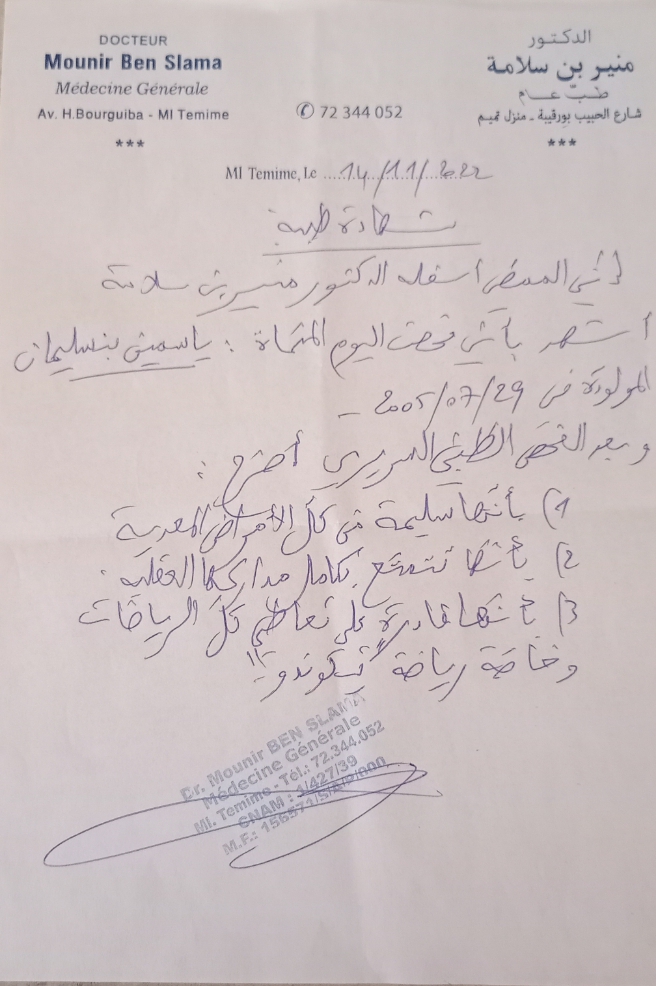 DOCTEUR
Mounir Ben Slama
Médecine Générale
Av. H.Bourguiba - Ml Temime
***
✆ 72 344 052
الدكتور
منير بن سلامة
طبّ عـــام
شارع الحبيب بورقيبة ـ منزل تميم
***
Ml Temime, Le 14/11/2022
شهادة طبية
إني الممضي أسفله الدكتور منير بن سلامة
أشهد بأني فحصت اليوم المسماة : ياسمين بنسليمان
المولودة في 2005/07/29 -
و بعد الفحص الطبي السريري أصرح :
1) بأنها سليمة من كل الأمراض المعدية
2) بأنها تتمتع بكامل مداركها العقلية .
3) بأنها قادرة على تعاطي كل الرياضات
و خاصة رياضة "تيكوندو"
Dr. Mounir BEN SLAMA
Médecine Générale
Ml. Temime - Tél.: 72.344.052
CNAM : 1/427/39
M.F.: